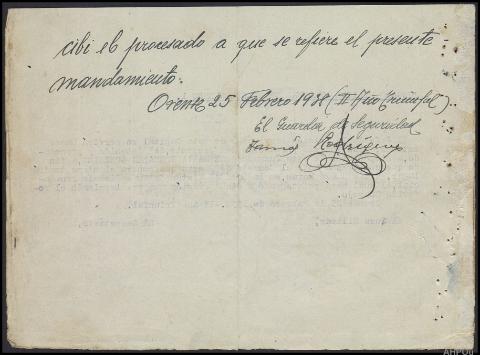 cibi el procesado a que se refiere el presente
mandamiento.
Orense 25 Febrero 1938 (II Año Triunfal)
El Guardia de Seguridad
Rodríguez
AHPOu